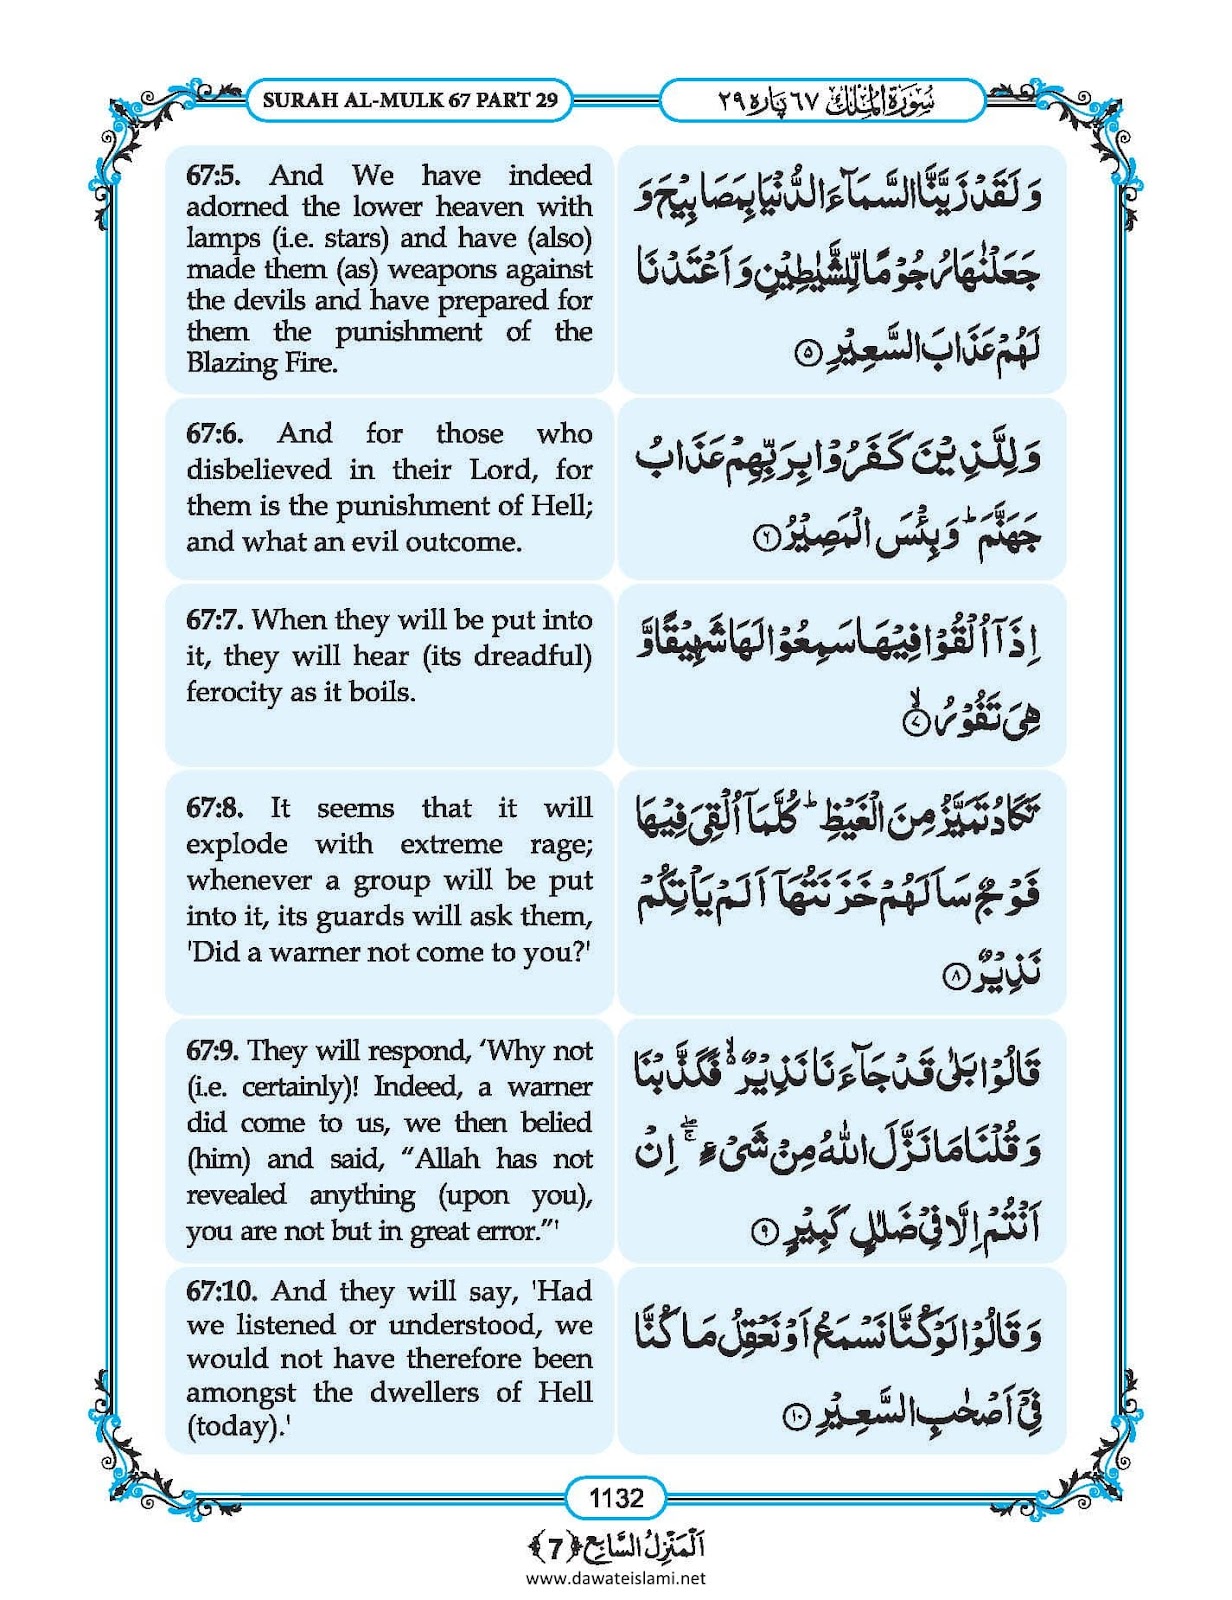 SURAH AL-MULK 67 PART 29
سُوْرَةُ الْمُلْك ٦٧ پارہ ٢٩
67:5. And We have indeed
adorned the lower heaven with
lamps (i.e. stars) and have (also)
made them (as) weapons against
the devils and have prepared for
them the punishment of the
Blazing Fire.
وَ لَقَدْ زَیَّنَّا السَّمَآءَ الدُّنْیَا بِمَصَابِیْحَ وَ
جَعَلْنٰهَا رُجُوْمًا لِّلشَّیٰطِیْنِ وَ اَعْتَدْنَا
لَهُمْ عَذَابَ السَّعِیْرِ ۝۵
67:6. And for those who
disbelieved in their Lord, for
them is the punishment of Hell;
and what an evil outcome.
وَ لِلَّذِیْنَ كَفَرُوْا بِرَبِّهِمْ عَذَابُ
جَهَنَّمَ ؕ وَ بِئْسَ الْمَصِیْرُ ۝۶
67:7. When they will be put into
it, they will hear (its dreadful)
ferocity as it boils.
اِذَاۤ اُلْقُوْا فِیْهَا سَمِعُوْا لَهَا شَهِیْقًا وَّ
هِیَ تَفُوْرُ ۙ۝۷
67:8. It seems that it will
explode with extreme rage;
whenever a group will be put
into it, its guards will ask them,
'Did a warner not come to you?'
تَكَادُ تَمَیَّزُ مِنَ الْغَیْظِ ؕ كُلَّمَاۤ اُلْقِیَ فِیْهَا
فَوْجٌ سَاَلَهُمْ خَزَنَتُهَاۤ اَلَمْ یَاْتِكُمْ
نَذِیْرٌ ۝۸
67:9. They will respond, ‘Why not
(i.e. certainly)! Indeed, a warner
did come to us, we then belied
(him) and said, “Allah has not
revealed anything (upon you),
you are not but in great error.”'
قَالُوْا بَلٰی قَدْ جَآءَنَا نَذِیْرٌ ۬ۙ فَكَذَّبْنَا
وَ قُلْنَا مَا نَزَّلَ اللّٰهُ مِنْ شَیْءٍ ۚۖ اِنْ
اَنْتُمْ اِلَّا فِیْ ضَلٰلٍ كَبِیْرٍ ۝۹
67:10. And they will say, 'Had
we listened or understood, we
would not have therefore been
amongst the dwellers of Hell
(today).'
وَ قَالُوْا لَوْ كُنَّا نَسْمَعُ اَوْ نَعْقِلُ مَا كُنَّا
فِیْۤ اَصْحٰبِ السَّعِیْرِ ۝۱۰
1132
اَلْمَنْزِلُ السَّابِع ﴿7﴾
www.dawateislami.net